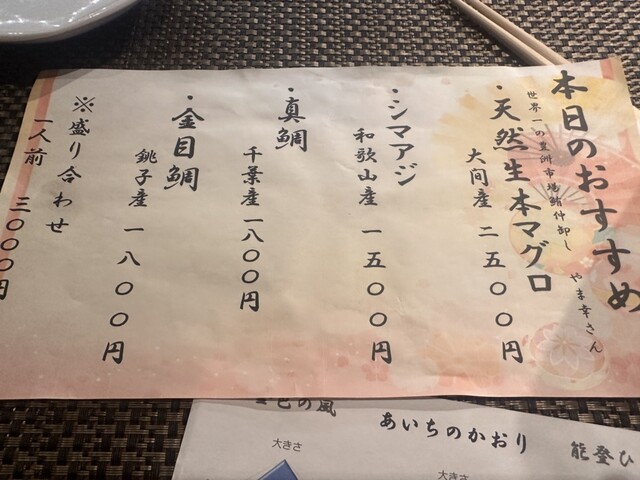 本日のおすすめ
世界一の豊洲市場鮪仲卸し やま幸さん
・天然生本マグロ
大間産 二五〇〇円
・シマアジ
和歌山産 一五〇〇円
・真鯛
千葉産 一八〇〇円
・金目鯛
銚子産 一八〇〇円
※盛り合わせ
一人前 三〇〇〇円
の風
あいちのかおり
能登ひ
大き さ
大き